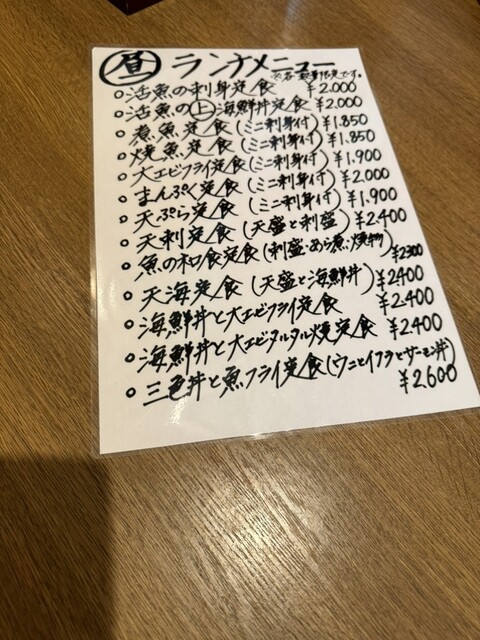 昼 ランチメニュー
※各数量限定です。
○活魚の刺身定食 ¥2.000
○活魚の上海鮮丼定食 ¥2.000
○煮魚定食(ミニ刺身付) ¥1.850
○焼魚定食(ミニ刺身付) ¥1.850
○大エビフライ定食(ミニ刺身付) ¥1.900
○まんぷく定食(ミニ刺身付) ¥2.000
○天ぷら定食(ミニ刺身付) ¥1.900
○天刺定食(天盛と刺盛) ¥2.400
○魚の和食定食(刺盛・あら煮・焼物) ¥2300
○天海定食(天盛と海鮮丼) ¥2400
○海鮮丼と大エビフライ定食 ¥2.400
○海鮮丼と大エビタルタル焼定食 ¥2.400
○三色丼と魚フライ定食(ウニとイクラとサーモン丼)
¥2.600